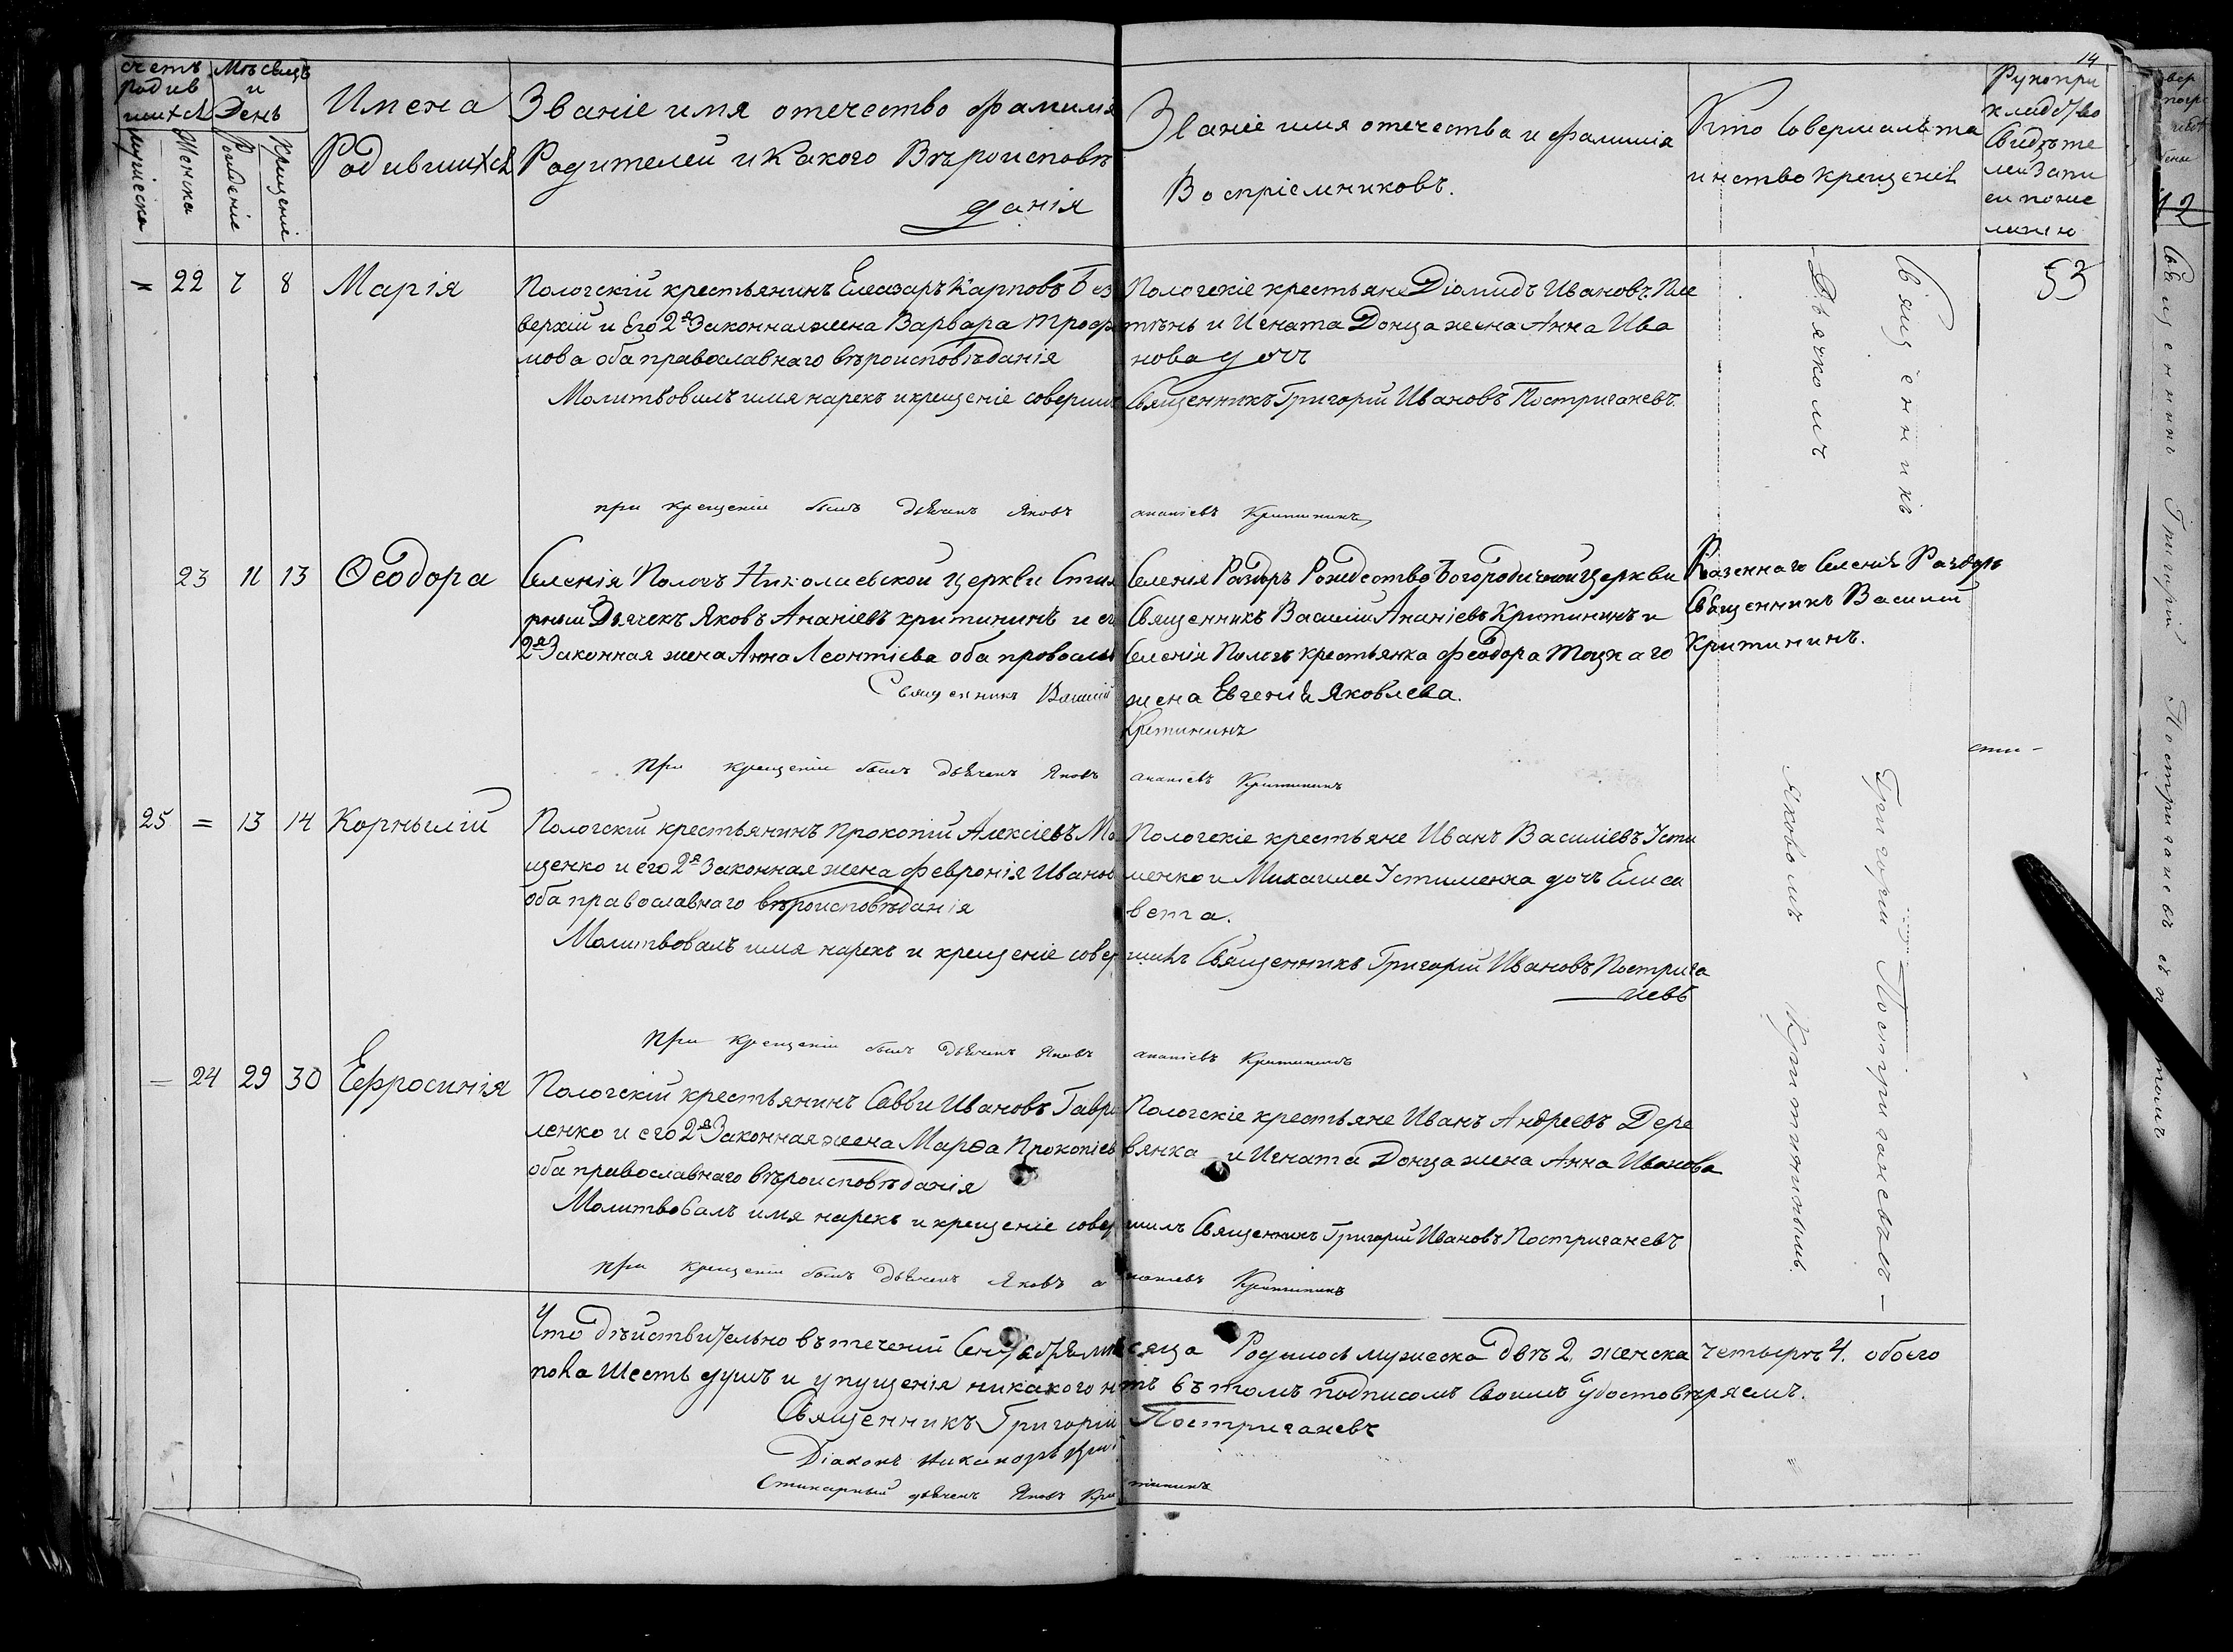 14
Счетъ родив шихся
Мѣсяцъ и День
Имена Родившихся
Званіе имя отечество фамилія
Родителей и Какого Вѣроисповѣ
данія
Званіе имя отечества и фамилія
Воспріемниковъ.
Кто Совершалъ та
инство крещенія
Рукопри
кладство
Свидѣте
лей Запи
си по же
ланію
мужеска
Женска
Рожденіе
Крещеніе
22 7 8 Марія
Пологскій крестьянинъ Елеазаръ Карповъ Без
верхій и Его 2я Законная жена Варвара Трофи
мова оба православнаго вѣроисповѣданія
Молитвовалъ имя нарекъ и крещеніе соверши
Пологскіе крестьяне Діомидъ Ивановъ Пле
тѣнь и Игната Донца жена Анна Ива
нова дочъ
Священникъ Григорій Ивановъ Постриганевъ.
53
при крещеніи былъ дьячекъ Яковъ ананіевъ Критининъ
23 11 13 Ѳеодора
Селенія Пологъ Николаевской церкви Стиха
рный Дьячекъ Яковъ Ананіевъ критининъ и его
2я Законная жена Анна Леонтіева оба православ
Священникъ Василій
Селенія Раздоръ Рождество Богородичной церкви
Священникъ Василій Ананіевъ Критининъ и
Селенія Пологъ крестьянка феодора Тоцкаго
жена Евгенія Яковлева.
Критининъ
Казеннаго Селенія Раздоръ
Священникъ Василій
Критининъ.
при крещеніи былъ дьячекъ Яковъ ананіевъ Критининъ
25 = 13 14 Корнылій
Пологскій крестьянинъ Прокопій Алексіевъ Мо
щенко и его 2я Законная жена Февронія Иванов
оба православнаго вѣроисповѣданія
Молитвовалъ имя нарекъ и крещеніе совер
Пологскіе крестьяне Иванъ Василіевъ Усти
менко и Михаила Устименка дочъ Елиса
вета.
шилъ Священникъ Григорій Ивановъ Постгрига
невъ
при крещеніи былъ дьячекъ Яковъ ананіевъ Критининъ
= 24 29 30 Ефросинія
Пологскій крестьянинъ Савви Ивановъ Гаври
ленко и его 2я Законная жена Марѳа Прокопіев
оба православнаго вѣроисповѣданія
Молитвовалъ имя нарекъ и крещеніе совер
Пологскіе крестьяне Иванъ Андреевъ Дере
вянка и Игната Донца жена Анна Иванова
шилъ Священникъ Григорій Ивановъ Постриганевъ
при крещеніи былъ дьячекъ Яковъ ананіевъ Критининъ
Священникъ Григорій Постриганевъ –
Дьячкомъ Яковомъ Критининымъ.
Что дѣйствительно въ теченіи Сентября мѣсяца Родилось мужеска двѣ 2, женска четыре 4. обоего
пола Шесть душъ и упущенія никакого нѣтъ въ томъ подписомъ Своимъ удостовѣряемъ.
Священникъ Григорій Постриганевъ
Діаконъ Никаноръ
Стихарный дьячекъ Яковъ Критининъ
12
Священникъ Григорій Постриганевъ